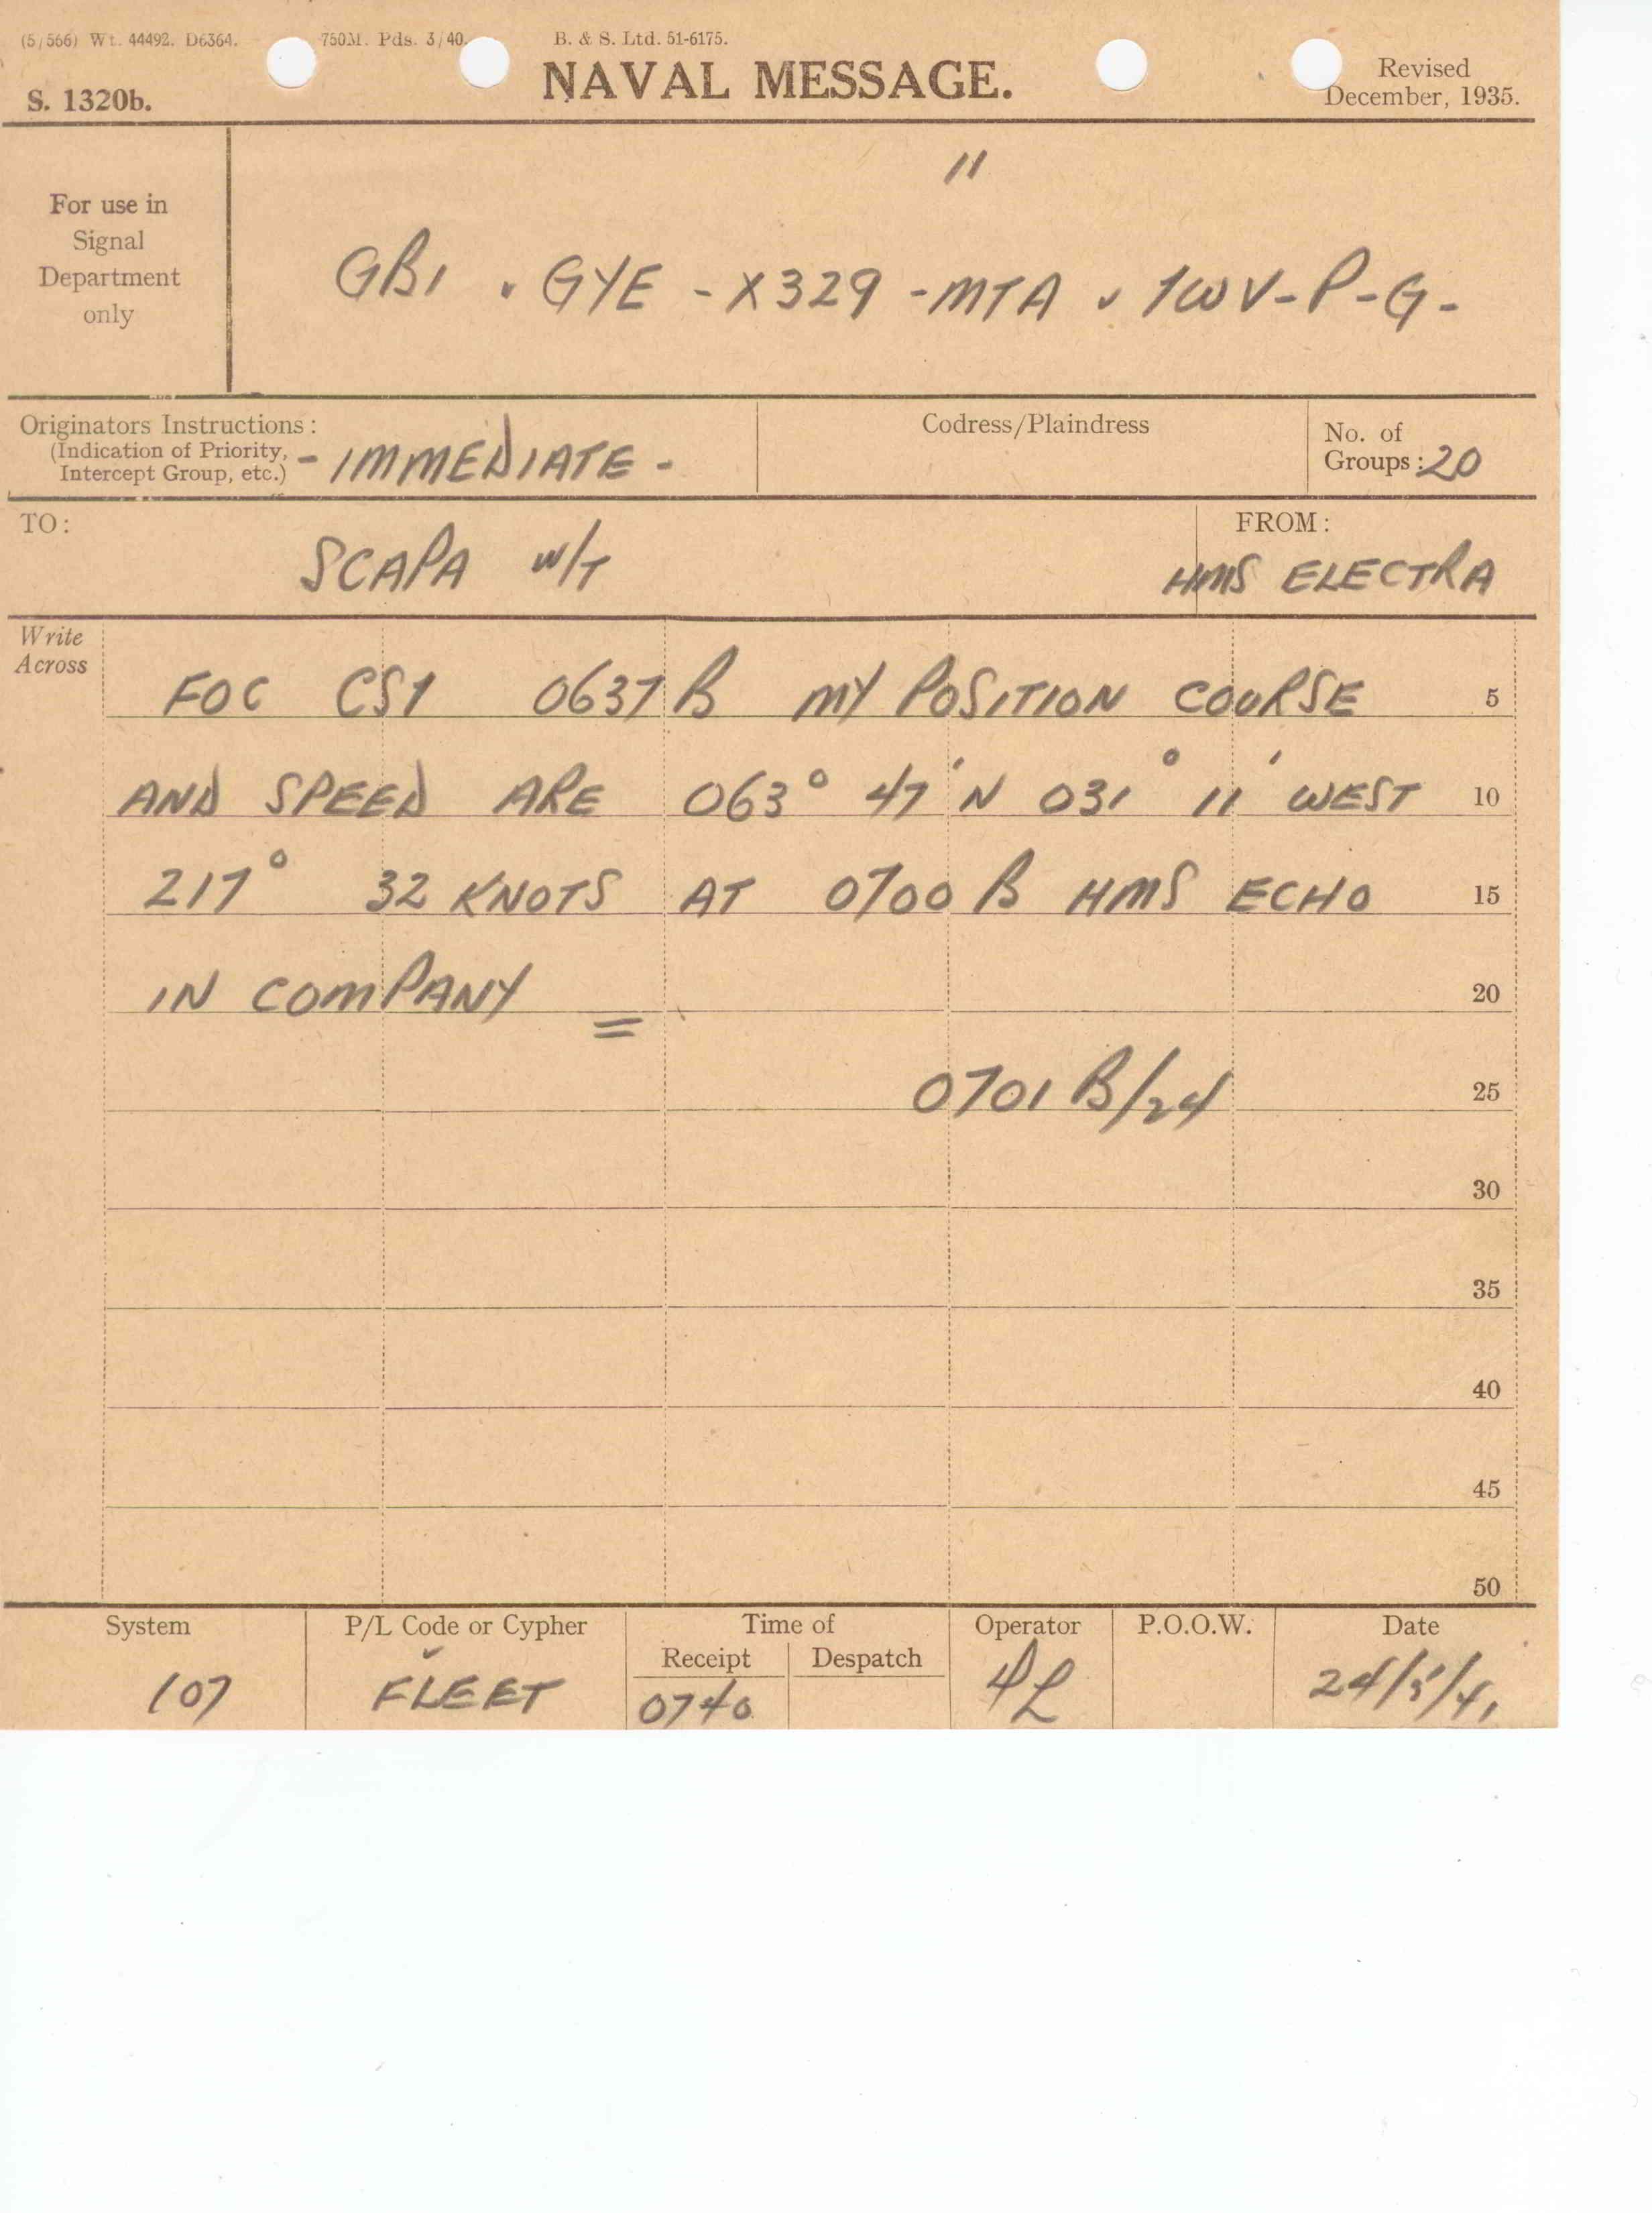 (5/566) Wt. 44492. D6364. 750M. Pds. 3/40. B. & S. Ltd. 51-6175.
S. 1320b.
NAVAL MESSAGE.
Revised
December, 1935.
For use in
Signal
Department
only
"
GBI . GYE - X329 - MTA v 1WV - P - G -
Originators Instructions:
(Indication of Priority,
Intercept Group, etc.)
- IMMEDIATE -
Codress/Plaindress
No. of
Groups: 20
TO:
SCAPA W/T
FROM:
HMS ELECTRA
Write
Across
FOC CS1 0637 B MY POSITION COURSE 5
AND SPEED ARE 063° 47' N 031° 11' WEST 10
217° 32 KNOTS AT 0700 B HMS ECHO 15
IN COMPANY = 20
0701 B/24 25
30
35
40
45
50
System P/L Code or Cypher Time of Operator P.O.O.W. Date
Receipt Despatch
107 FLEET 0740 24/5/41